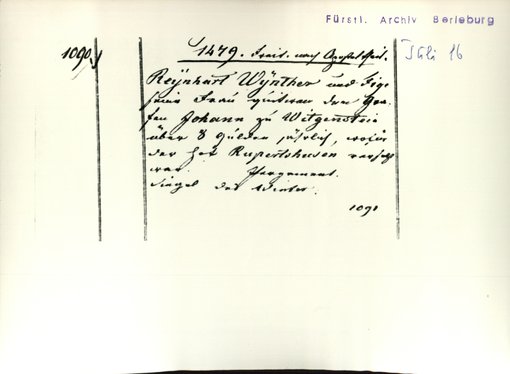 Fürstl. Archiv Berleburg
1090.
1479. Freit. nach
Reÿnhart Wÿnther und
seine Frau quittiren dem Gra-
fen Johann zu Witgenstein
über 8 Gülden jährlich, wofür
der Hof Rupertshusen versetzt
war. Pergament.
Siegel des Winter.
1091